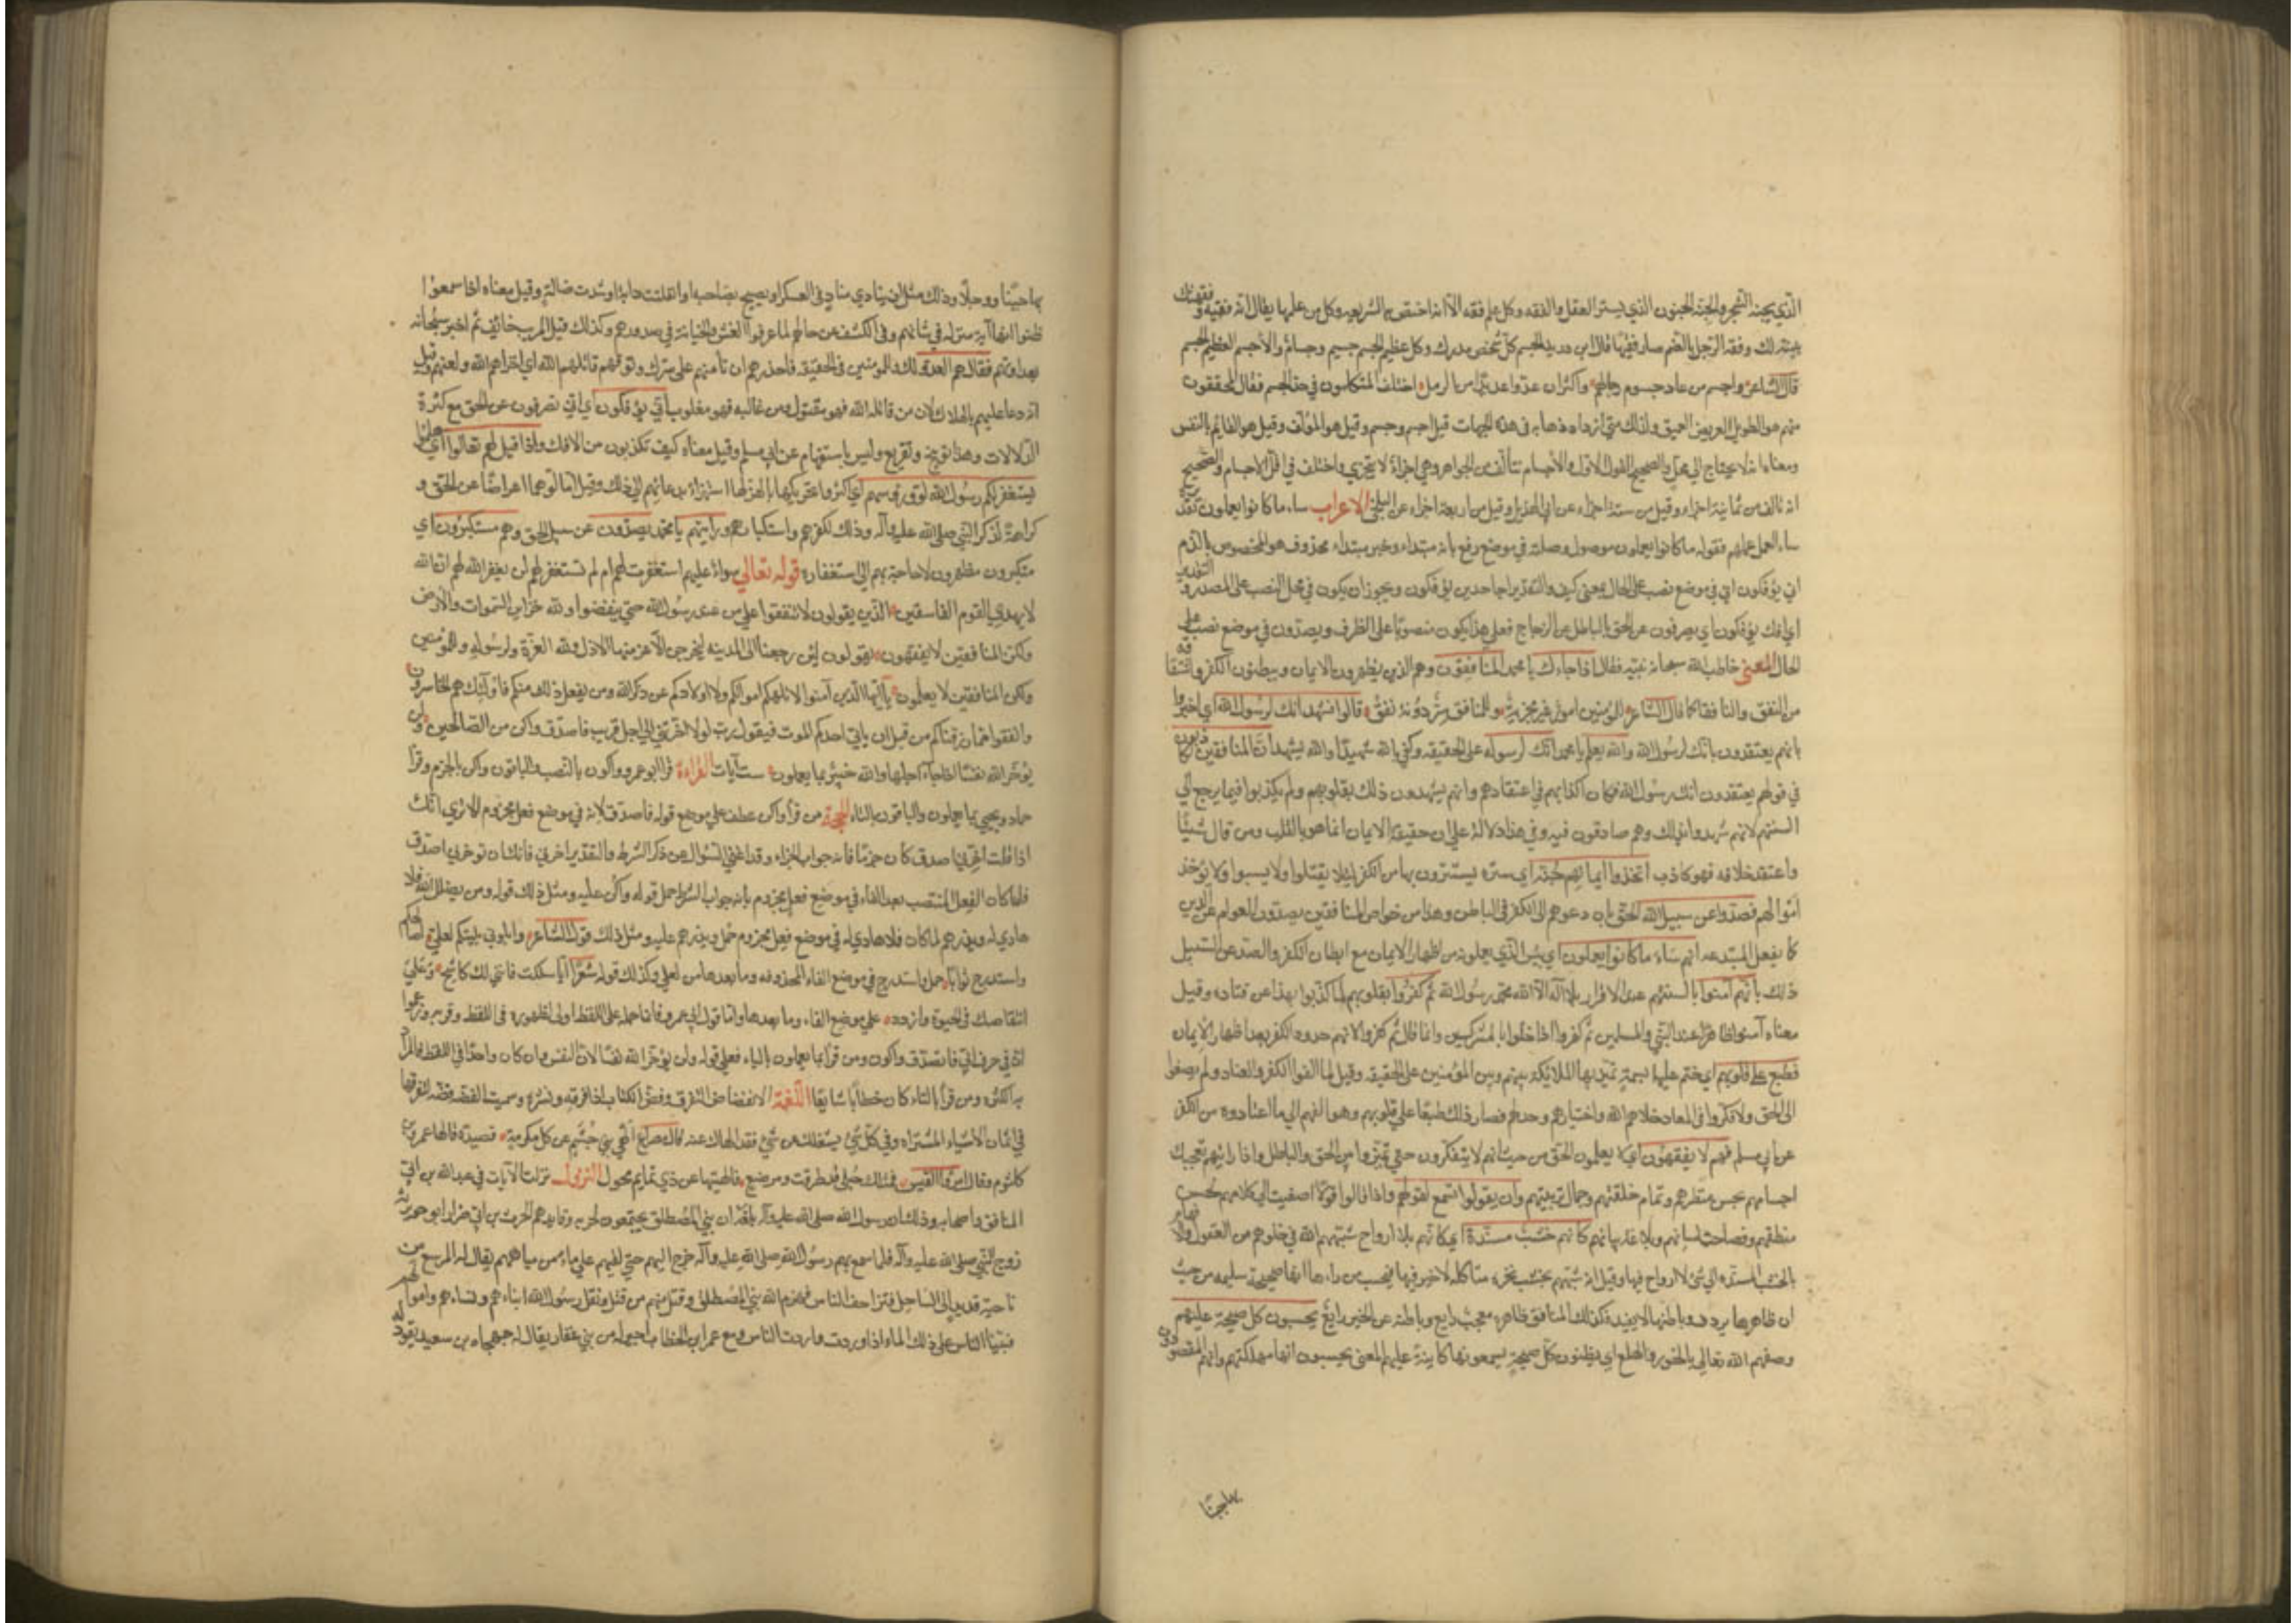 الذي يجنه الشجر والجنة الجنون الذي يستر العقل والفقه وكل علم فقه الا انه اختص بالشريعة وكل من علمها يقال انه فقيه وفقهتك
بينت لك وفقه الرجل بالضم صار فقيها قال ابن دريد الجسم كل شخص مدرك وكل عظيم الجسم جسيم وجسام والأجسم العظيم الجسم
قال الشاعر واجسم من عاد جسوم رجالهم واكثر ان عدوا عديدا من الرمل اختلف المتكلمون في حد الجسم فقال المحققون
منهم هو الطويل العريض العميق ولذلك متى ازداد ذهابه في هذه الجهات قيل اجسم وجسيم وقيل هو المؤلف وقيل هو القائم بالنفس
ومعناه انه لا يحتاج الى محل والصحيح القول الاول والاجسام تتألف من الجواهر وهي اجزاء لا يتجزي واختلف في اقل الاجسام والصحيح
انه تألف من ثمانية اجزاء وقيل من ستة اجزاء عن ابي الهذيل وقيل من اربعة اجزاء عن البلخي الاعراب ساء ما كانوا يعملون تقديره
ساء العمل عملهم فقوله ما كانوا يعملون موصول وصلة في موضع رفع بانه مبتداء وخبر مبتداء محذوف هو المخصوص بالذم
انى يؤفكون انى في موضع نصب على الحال بمعنى كيف والتقدير اجاحدين يؤفكون ويجوز ان يكون في محل النصب على المصدر والتقدير
اي افك يؤفكون اي يصرفون عن الحق بالباطل عن الزجاج فعلى هذا يكون منصوبا على الظرف ويصدون في موضع نصب على
الحال المعنى خاطب الله سبحانه نبيه فقال اذا جاءك يا محمد المنافقون وهم الذين يظهرون الايمان ويبطنون الكفر واشتقاقه
من النفق والنافقا كما قال الشاعر للمؤمنين امور غير مجزية وللمنافق سر دونه نفق قالوا نشهد انك لرسول الله اي اخبروا
بانهم يعتقدون بانك لرسول الله والله يعلم يا محمد انك لرسوله على الحقيقه وكفى بالله شهيدا والله يشهد ان المنافقين لكاذبون
في قولهم يعتقدون انك رسول الله فكان اكذابهم في اعتقادهم وانهم يشهدون ذلك بقلوبهم ولم يكذبوا فيما يرجع الى
السنتهم لانهم شهدوا بذلك وهم صادقون فيه وفي هذا دلالة على ان حقيقة الايمان انما هو بالقلب ومن قال شيئا
واعتقد خلافه فهو كاذب اتخذوا ايمانهم جنة اي سترة يستترون بها من الكفر لئلا يقتلوا ولا يسبوا ولا يؤخذ
اموالهم فصدوا عن سبيل الله الحق بان دعوهم الى الكفر في الباطن وهذا من خواص المنافقين يصدون العوام عن الدين
كما يفعل المبتدعه انهم ساء ما كانوا يعملون اي بئس الذي يعملونه من اظهار الايمان مع ابطان الكفر والصد عن السبيل
ذلك بانهم امنوا بالسنتهم عند الاقرار بلا اله الا الله محمد رسول الله ثم كفروا بقلوبهم لما كذبوا بهذا عن قتاده وقيل
معناه آمنوا ظاهرا عند النبي والمسلمين ثم كفروا اذا خلوا بالمشركين وانما قال ثم كفروا لانهم جددوا الكفر بعد اظهار الايمان
فطبع على قلوبهم اي ختم عليها بسمة تميز بها الملائكة بينهم وبين المؤمنين على الحقيقه وقيل لما الفوا الكفر والعناد ولم يصغوا
الى الحق ولا فكروا في المعاد خلاهم الله واختيارهم وخذلهم فصار ذلك طبعا على قلوبهم وهو الفهم الى ما اعتادوه من الكفر
عن ابي مسلم فهم لا يفقهون اي لا يعلمون الحق من حيث انهم لا يتفكرون حتى يميزوا بين الحق والباطل واذا رايتهم تعجبك
اجسامهم بحسن منظرهم وتمام خلقتهم وجمال بزتهم وان يقولوا تسمع لقولهم واذا قالوا قولا اصغيت الى كلامهم لحسن
منطقهم وفصاحة لسانهم وبلاغة بيانهم كانهم خشب مسندة اي كانهم بلا ارواح شبههم الله في خلوهم من العقول والافهام
بالخشب المسندة الى شئ لا ارواح فيها وقيل انه شبههم بخشب نخرة متاكله لا خير فيها فيحسب من راءها انها صحيحة سليمه من حيث
ان ظاهرها يروق وباطنها لا يفيد وكذلك المنافق ظاهره معجب رايع وباطنه عن الخير زايغ يحسبون كل صيحة عليهم
وصفهم الله تعالى بالخور والهلع اي يظنون كل صيحة يسمعونها كاينة عليهم والمعنى يحسبون انها مهلكتهم وانهم المقصودون
بها جبنا
بها جبنا ووجلا وذلك مثل ان ينادي مناد في العسكر او يصيح بصاحبه او انفلتت دابة او نشدت ضالة وقيل معناه اذا سمعوا
ظنوا انها آية منزله في شانهم وفي الكشف عن حالهم لما عرفوا الغش والخيانة في صدورهم وكذلك قيل المريب خائف ثم اخبر سبحانه
بعداوتهم فقال هم العدو لك والمؤمنين في الحقيقه فاحذرهم ان تأمنهم على سرك وتوقهم قاتلهم الله اي اخزاهم الله ولعنهم وقيل
انه دعا عليهم بالهلاك لان من قاتله الله فهو مقتول ومن غالبه فهو مغلوب انى يؤفكون اي انى يصرفون عن الحق مع كثرة
الدلالات وهذا توبيخ وتقريع وليس باستفهام عن ابي مسلم وقيل معناه كيف تكذبون من الافك واذا قيل لهم تعالوا اي هلموا
يستغفر لكم رسول الله لووا رؤسهم اي اكثروا تحريكها بالهزء لها استهزاء بدعائهم الى ذلك وقيل امالوها اعراضا عن الحق و
كراهة لذكر النبي صلى الله عليه وآله وذلك لكفرهم واستكبارهم ورايتهم يا محمد يصدون عن سبيل الحق وهم مستكبرون اي
متكبرون مظهرون لا حاجة بهم الى استغفاره قوله تعالى سواء عليهم استغفرت لهم ام لم تستغفر لهم لن يغفر الله لهم ان الله
لا يهدي القوم الفاسقين الذين يقولون لا تنفقوا على من عند رسول الله حتى ينفضوا ولله خزاين السموات والارض
ولكن المنافقين لا يفقهون يقولون لئن رجعنا الى المدينه ليخرجن الاعز منها الاذل ولله العزة ولرسوله وللمؤمنين
ولكن المنافقين لا يعلمون يا ايها الذين آمنوا لا تلهكم اموالكم ولا اولادكم عن ذكر الله ومن يفعل ذلك منكم فاولئك هم الخاسرون
وانفقوا مما رزقناكم من قبل ان ياتي احدكم الموت فيقول رب لولا اخرتني الى اجل قريب فاصدق واكن من الصالحين ولن
يؤخر الله نفسا اذا جاء اجلها والله خبير بما يعملون ست آيات القراءة قرا ابو عمرو واكون بالنصب والباقون واكن بالجزم وقرأ
حماد ويحيى بما يعملون والباقون بالتاء الحجة من قرأ واكن عطف على موضع قوله فاصدق لانه في موضع فعل مجزوم الا ترى انك
اذا قلت اخرني اصدق كان جزما فانه جواب الجزاء وقد اغنى السؤال عن ذكر الشرط والتقدير اخرني فانك ان توخرني اصدق
فلما كان الفعل المنتصب بعد الفاء في موضع فعل مجزوم بانه جواب الشرط حمل قوله واكن عليه ومثل ذلك قوله ومن يضلل الله فلا
هادي له ويذرهم لما كان فلا هادي له في موضع فعل مجزوم حمل ويذرهم عليه ومثل ذلك قول الشاعر وابلوني بليتكم لعلي اصالحكم
واستدرج نوايا حمل واستدرج في موضع الفاء المحذوفه وما بعدها من لعلي وكذلك قوله شعرا ايا سلكت فانني لك كاشح وعلى
انتقاصك في الحيوة وازدد على موضع الفاء وما بعدها واما قول ابي عمرو فانما حمله على اللفظ اولى لظهوره في اللفظ وقربه وزعموا
ان في حرف ابي فاتصدق واكون ومن قرا بما يعملون بالياء فعلى قوله ولن يؤخر الله نفسا لان النفس وان كان واحدا في اللفظ فالمراد
به الكثرة ومن قرأ بالتاء كان خطابا شايعا اللغة الانفضاض التفرق وفض الكتاب اذا فرقه ونشره وسميت الفضه فضه لتفرقها
في اثمان الاشياء المشتراه وفي كل شئ يشغلك عن شئ فقد الهاك عنه قال الهى بني جشم عن كل مكرمة قصيدة قالها عمرو بن
كلثوم وقال امرؤ القيس فمثلك حبلى قد طرقت ومرضع فالهيتها عن ذي تمايم محول النزول نزلت الآيات في عبد الله بن ابي
المنافق واصحابه وذلك ان رسول الله صلى الله عليه وآله بلغه ان بني المصطلق يجتمعون لحربه وقايدهم الحرث بن ابي ضرار ابو جويرية
زوج النبي صلى الله عليه وآله فلما سمع بهم رسول الله صلى الله عليه وآله خرج اليهم حتى لقيهم على ماء من مياههم يقال له المريسيع من
ناحية قديد الى الساحل فتزاحف الناس فهزم الله بني المصطلق وقتل منهم من قتل ونقل رسول الله ابناءهم ونساءهم واموالهم
فبينا الناس على ذلك الماء اذ وردت واردة الناس ومع عمر ابن الخطاب اجير له من بني غفار يقال له جهجاه بن سعيد يقود له